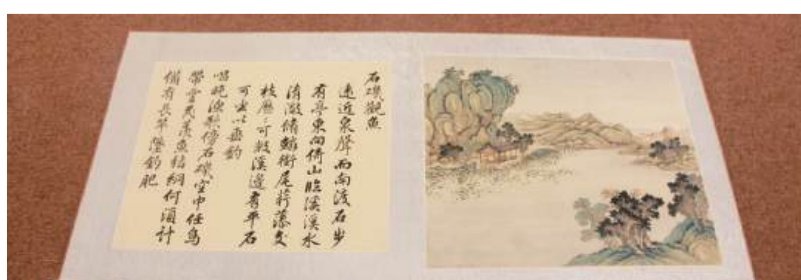 石磯觀魚
遠近泉聲而南渡石步
有亭東向倚山臨溪溪水
清澈脩鱗銜尾荇藻交
枝歷々可數溪邊有平石
可坐以垂釣
唱晚漁歌傍石磯空中任鳥
帶雲飛羨魚結網何須計
備有長竿墜釣肥